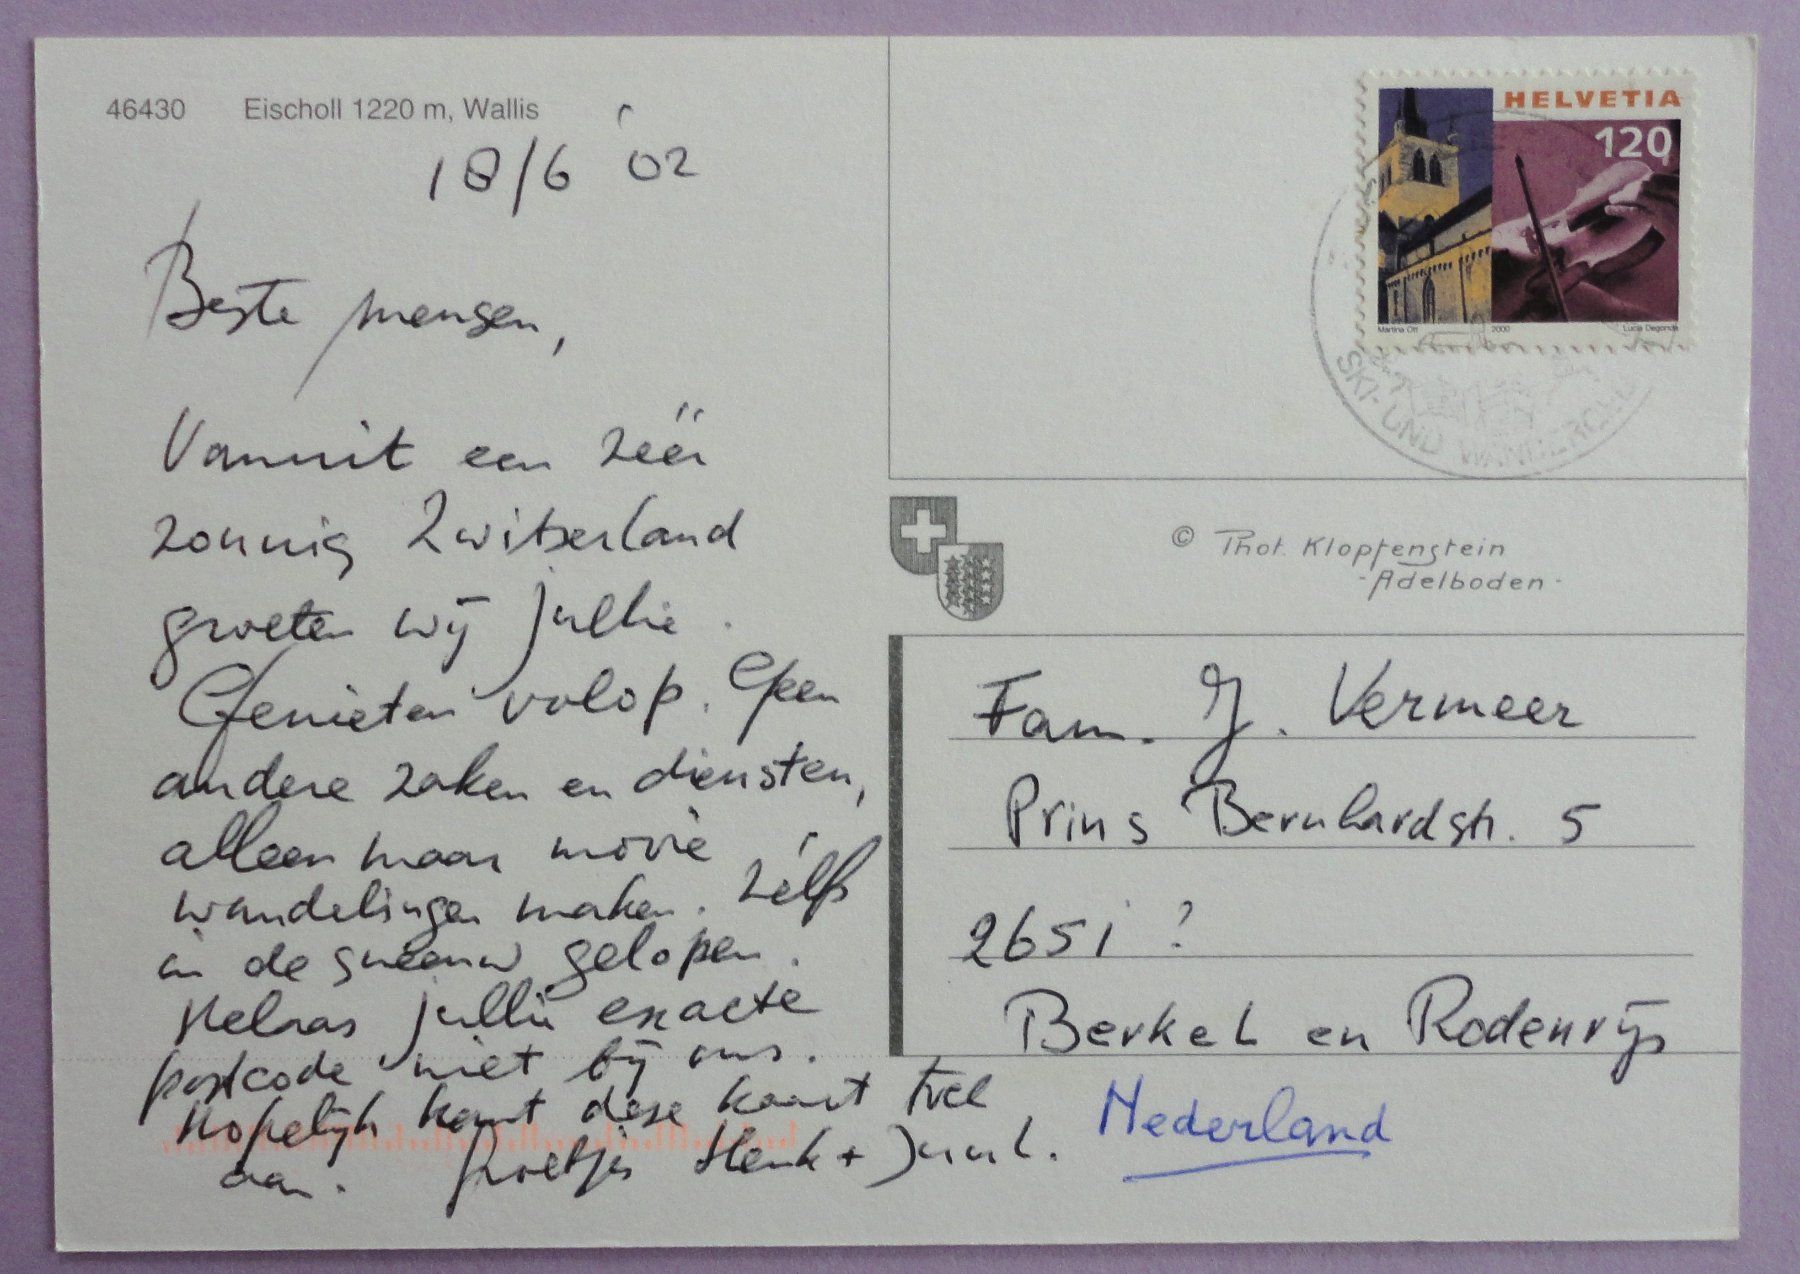 46430 Eischoll 1220 m, Wallis
18/6 '02
Beste mensen,
Vanuit een zéér
zonnig Zwitserland
groeten wij jullie.
Genieten volop. Geen
andere zaken en diensten,
alleen maar mooie
wandelingen maken. Zelfs
in de sneeuw gelopen.
Helaas jullie exacte
postcode niet bij ons.
Hopelijk komt deze kaart wel
aan. Groetjes Henk +
HELVETIA
120
Martina Ott 2000 Lucia Degonda
SKI- UND WANDER
© Phot. Klopfenstein
- Adelboden -
Fam. J. Vermeer
Prins Bernhardstr. 5
2651 ?
Berkel en Rodenrijs
Nederland